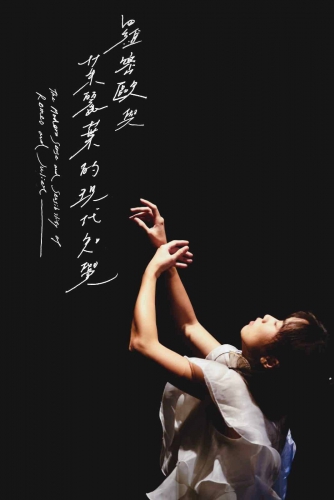 羅密歐與
茱麗葉的現代知覺
The Modern Sense and Sensibility of
Romeo and Juliet